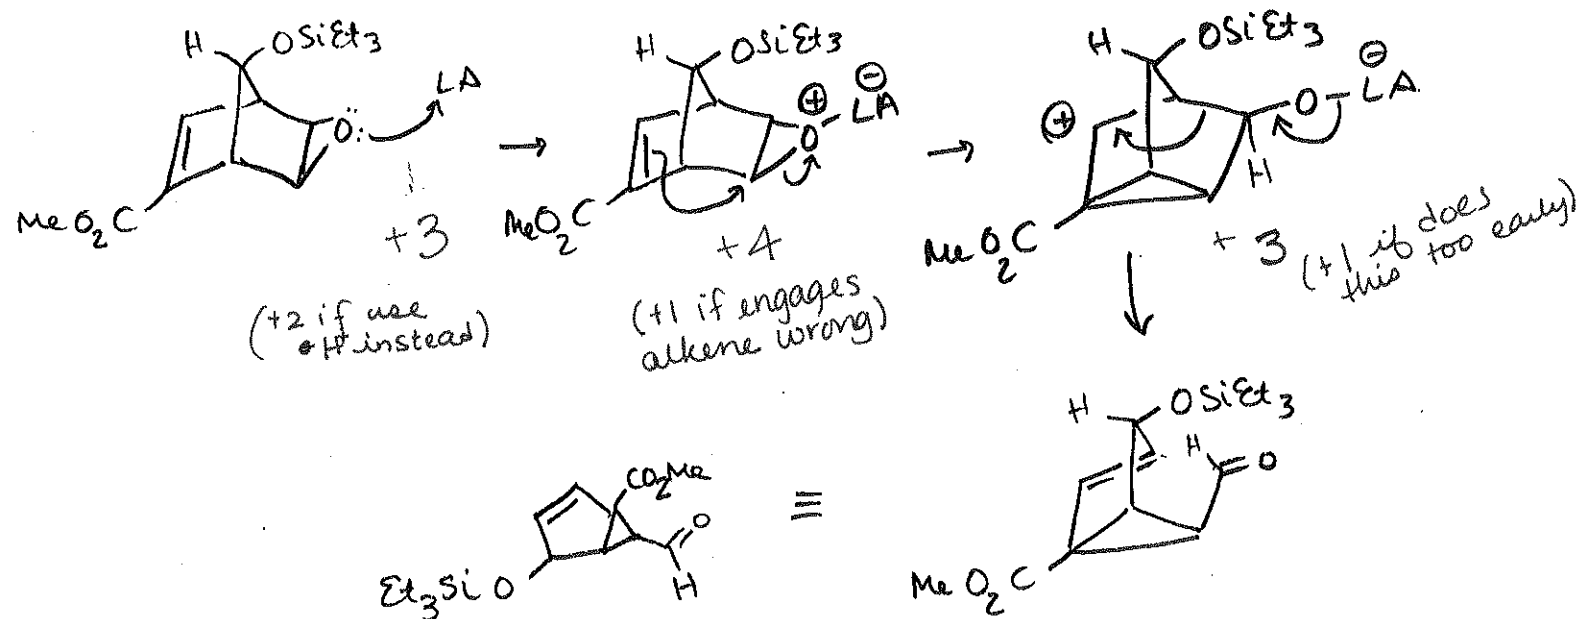 H OSiEt3
LA
O:
MeO2C
+3
(+2 if use
H+ instead)
H OSiEt3
⊖
⊕ LA
O
MeO2C
+4
(+1 if engages
alkene wrong)
H OSiEt3
⊖
⊕ O-LA
H
MeO2C
+3 (+1 if does
this too early)
CO2Me
O
H
Et3SiO
≡
H OSiEt3
H O
MeO2C